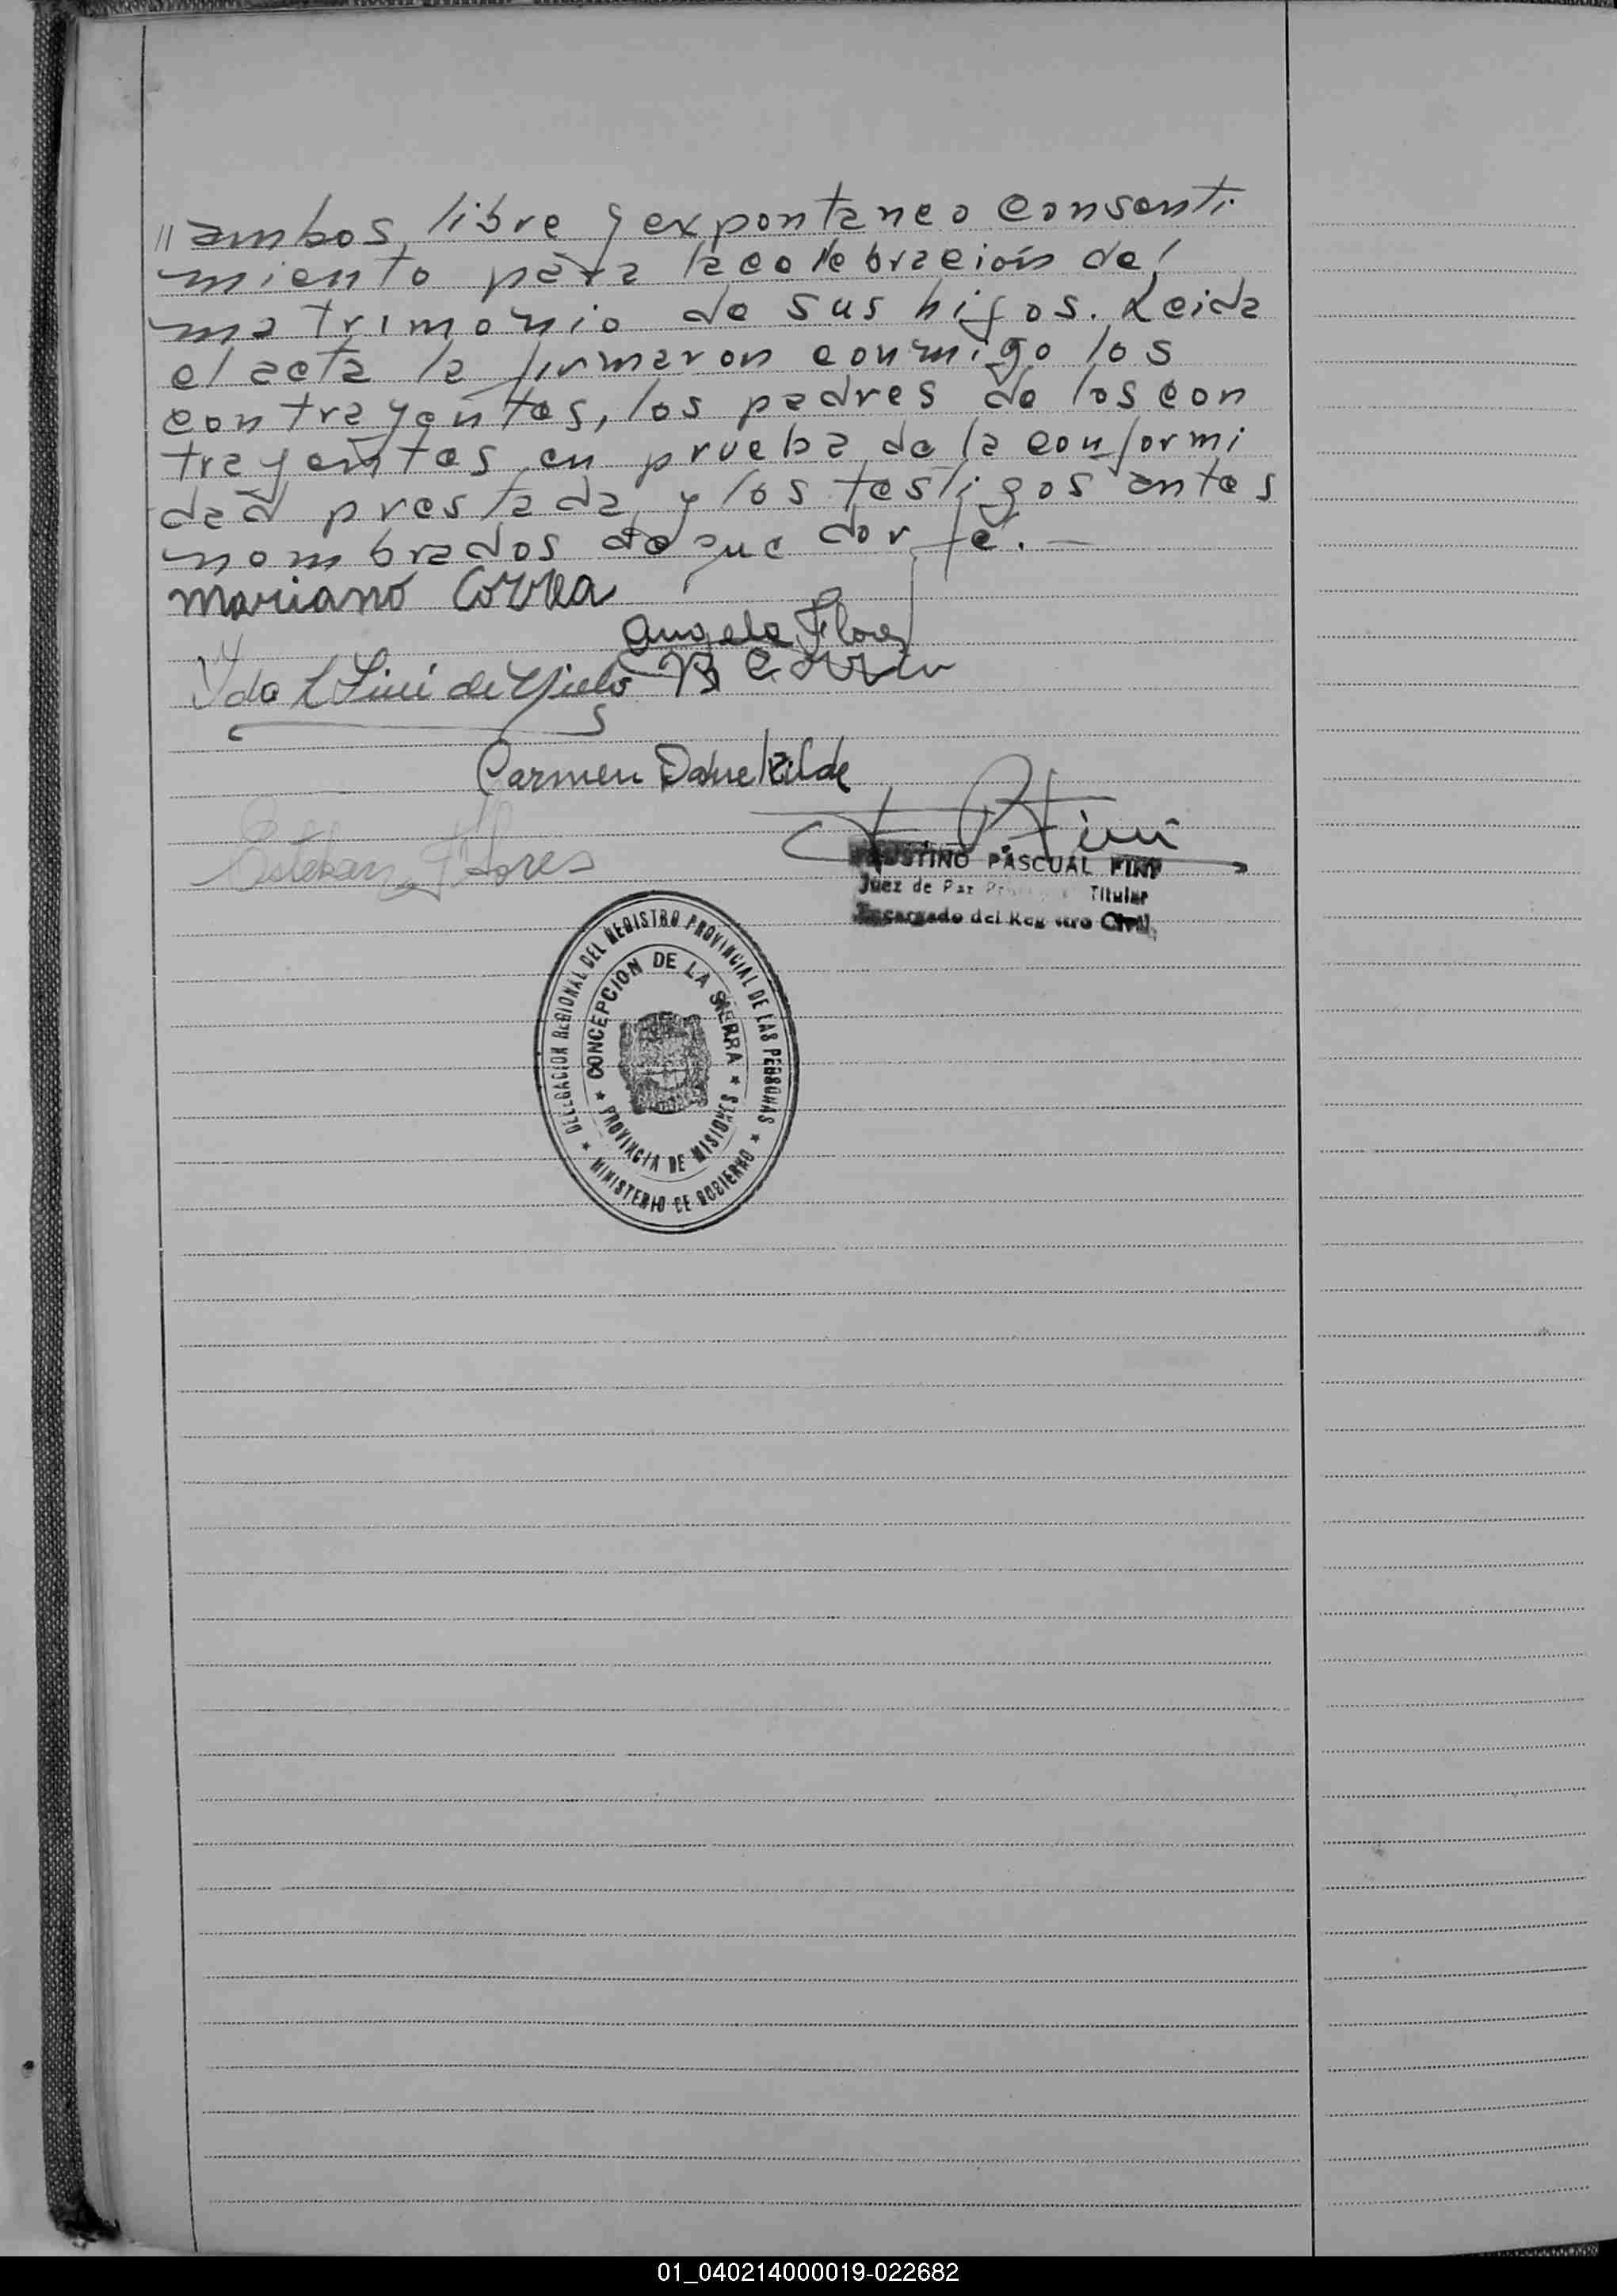 // ambos, libre y expontaneo consenti
miento para la celebración del
matrimonio de sus hijos. Leida
el acta la firmaron conmigo los
contrayentes, los padres de los con
trayentes en prueba de la conformi
dad prestada y los testigos antes
nombrados de que doy fé. —
Mariano Correa
Angela Flores
Yda L Fini de
Carmen
Esteban Flores
Fini
AGUSTINO PASCUAL FINI
Juez de Paz Titular
Encargado del Registro Civil
DELEGACION REGIONAL DEL REGISTRO PROVINCIAL DE LAS PERSONAS
CONCEPCION DE LA SIERRA
PROVINCIA DE MISIONES
MINISTERIO DE GOBIERNO
01_040214000019-022682